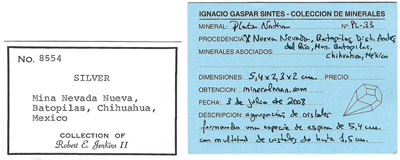 No. 8554
SILVER
Mina Nevada Nueva,
Batopilas, Chihuahua,
Mexico
COLLECTION OF
Robert E. Jenkins II
IGNACIO GASPAR SINTES - COLECCION DE MINERALES
MINERAL: Plata Nativa Nº PL-33
PROCEDENCIA: Nueva Nevada, Batopilas Dist. Andrés
MINERALES ASOCIADOS: del Río, Mun. Batopilas,
Chihuahua, México
DIMENSIONES: 5,4 x 2,3 x 2 cm.
OBTENCION: mineralman.com
FECHA: 3 de julio de 2008
DESCRIPCION: agrupación de cristales
formando una especie de espina de 5,4 cm
con multitud de cristales de hasta 1,5 cm.